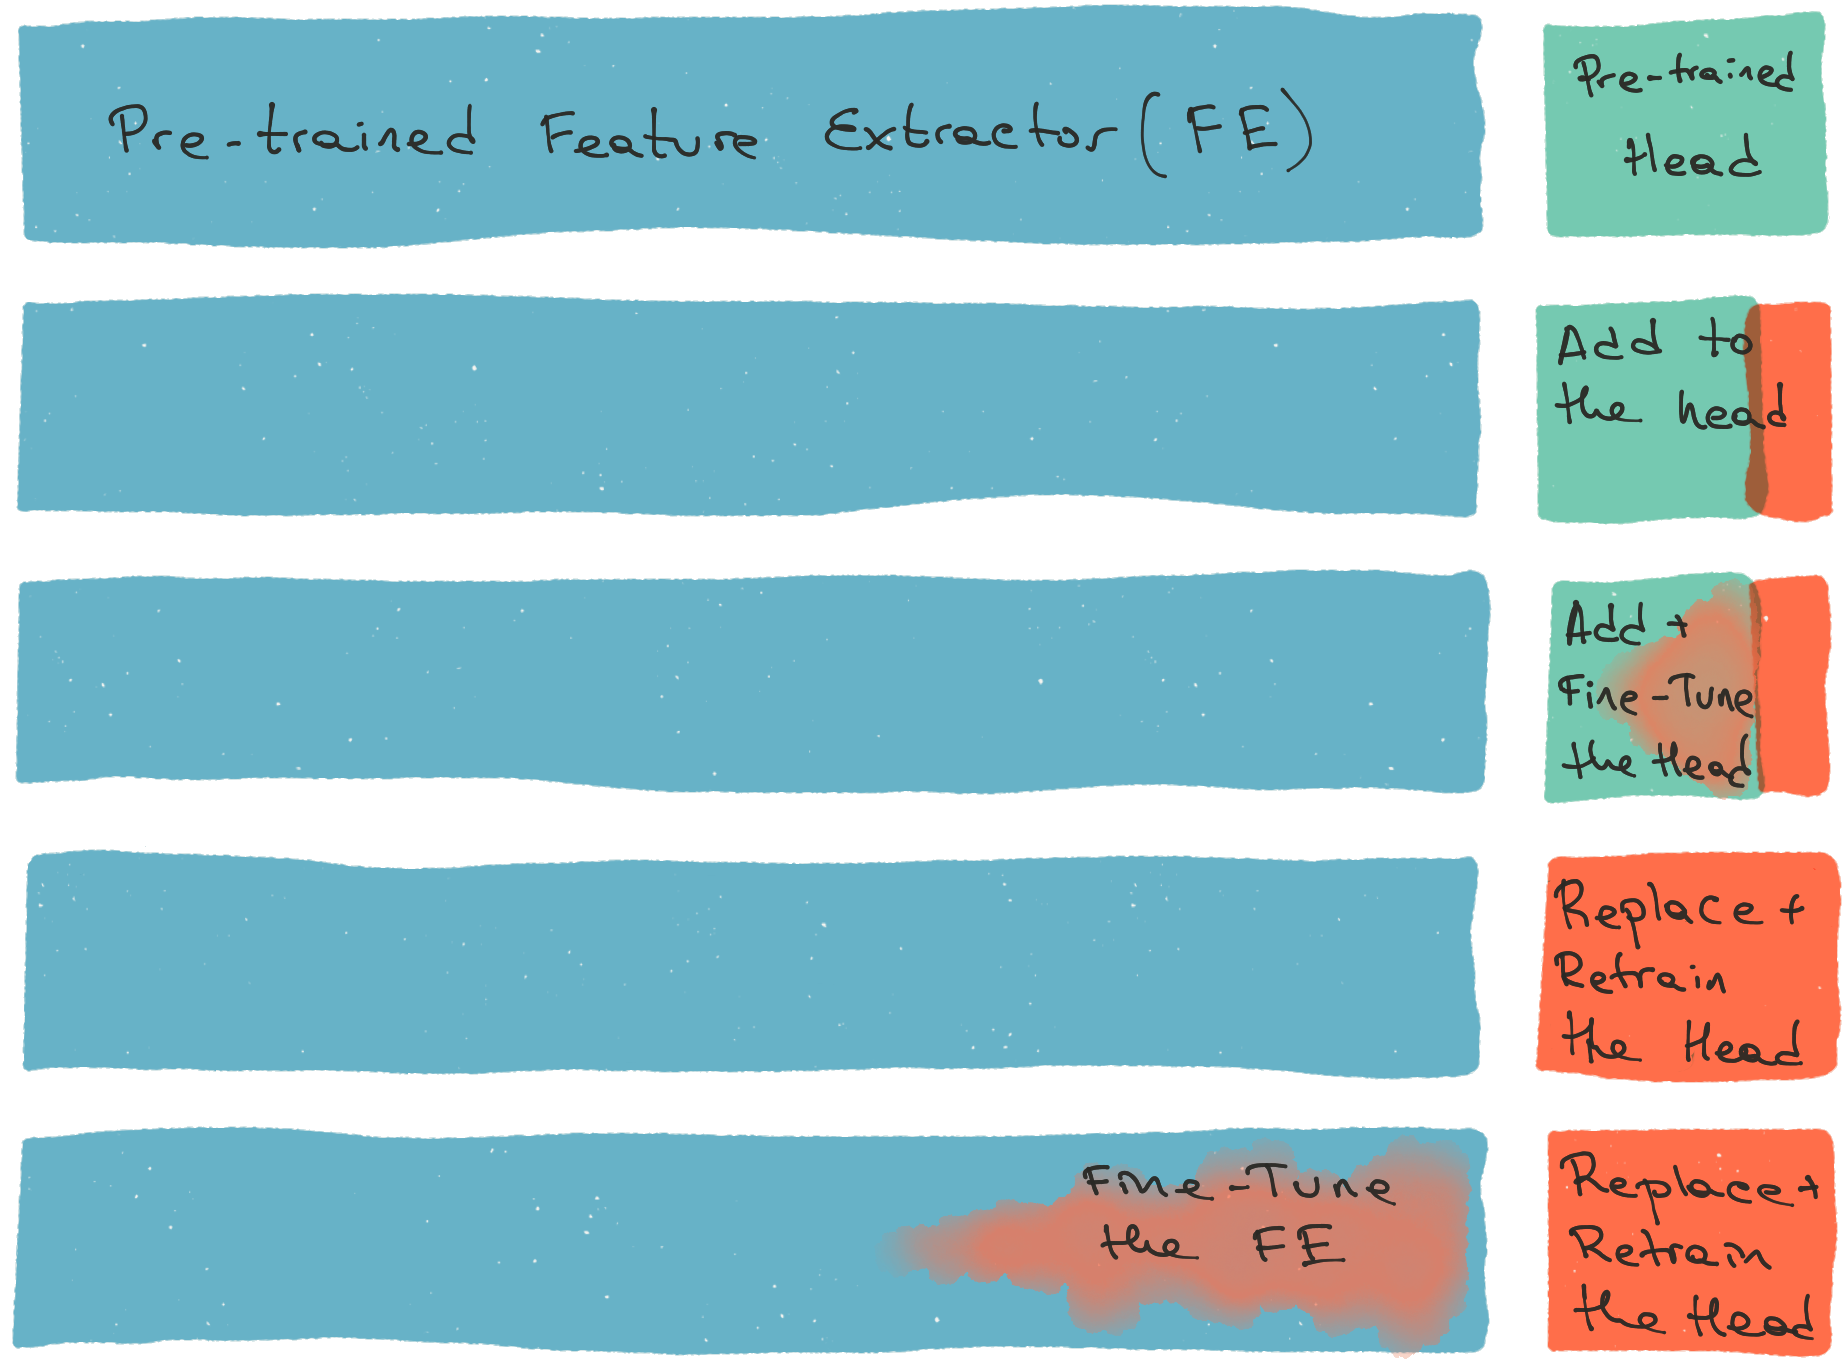 Pre-trained Feature Extractor (FE)
Pre-trained
Head
Add to
the head
Add +
Fine-Tune
the Head
Replace +
Retrain
the Head
Fine-Tune
the FE
Replace +
Retrain
the Head